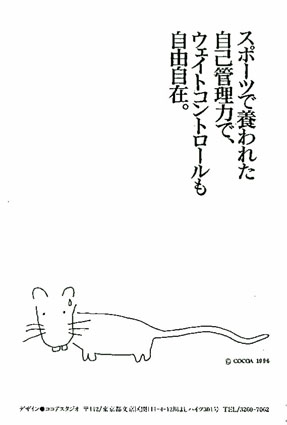 スポーツで養われた
自己管理力で、
ウェイトコントロールも
自由自在。
© COCOA 1996
デザイン●ココアスタジオ 〒112/東京都文京区 TEL/3260-7062